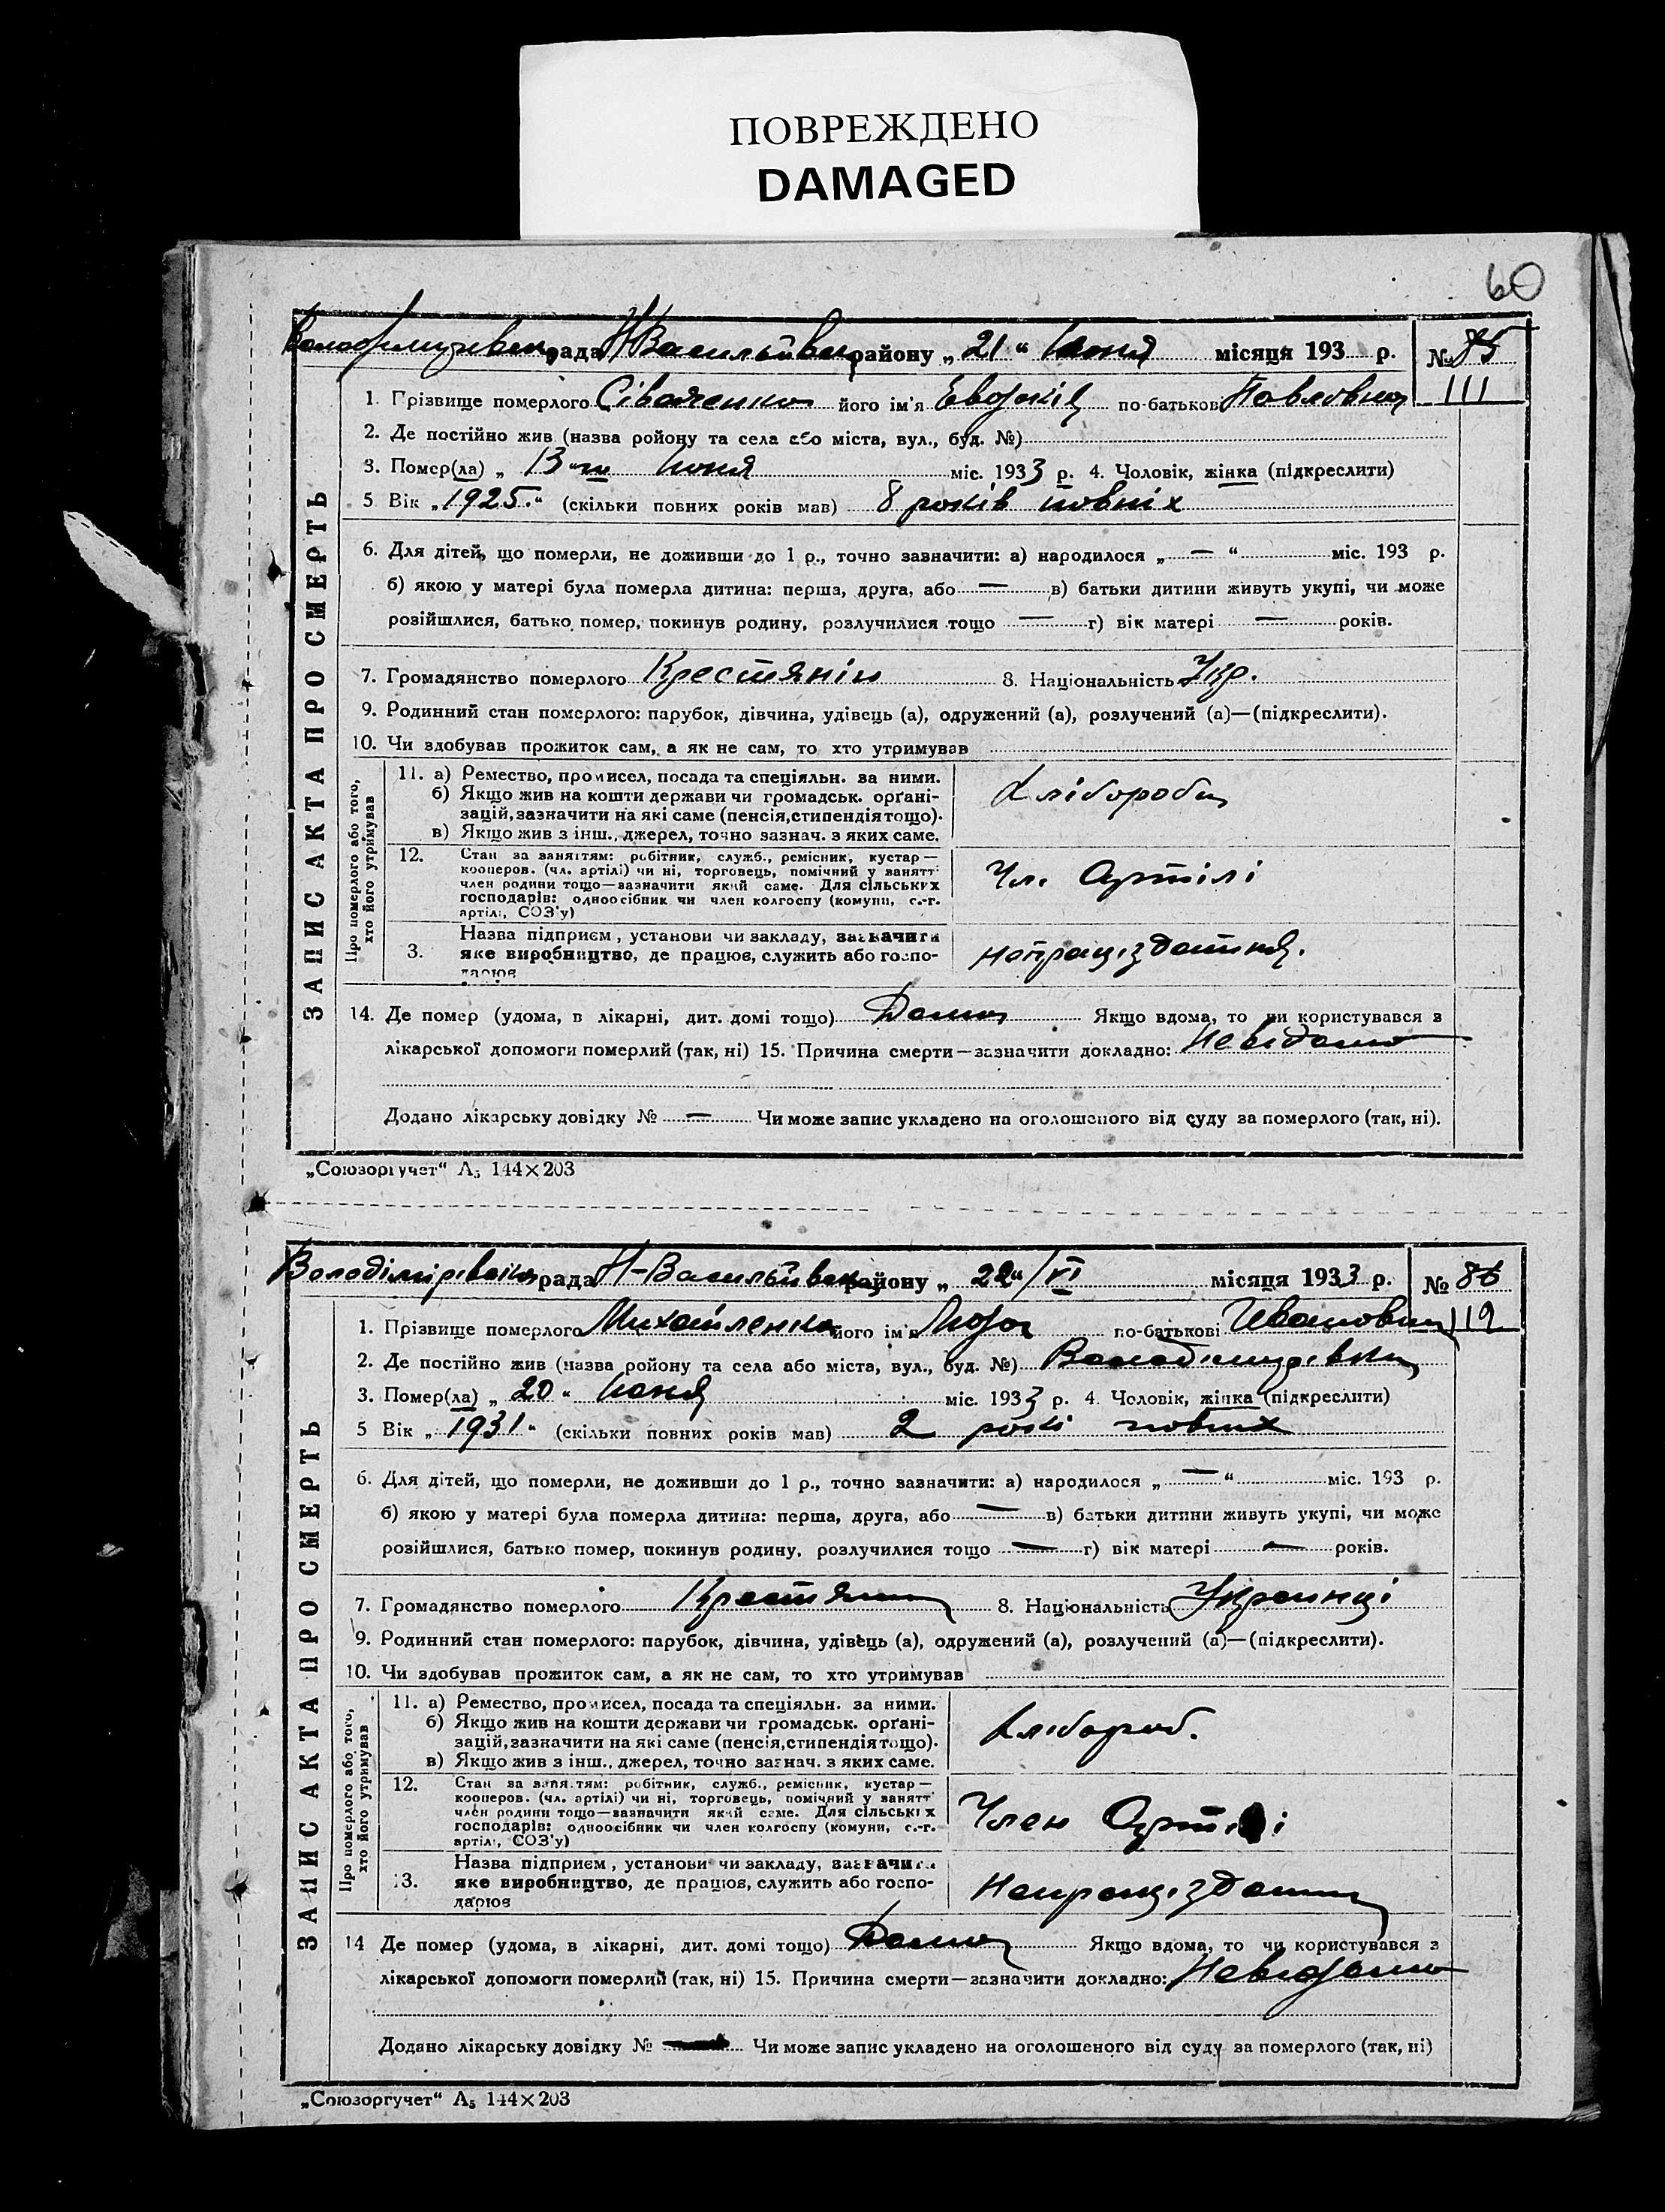 ПОВРЕЖДЕНО
DAMAGED
60
рада Н Васильївськ району „ 21 “ Июня місяця 193 р. № 85
111
1. Прізвище померлого його ім'я Евдокія по-батькові Павловна
2. Де постійно жив (назва ройону та села або міста, вул., буд. №)
3. Помер(ла) „ 13 “ Июня міс. 1933 р. 4. Чоловік, жінка (підкреслити)
5 Вік „ 1925. “ (скільки повних років мав) 8 років повніх
6. Для дітей, що померли, не доживши до 1 р., точно зазначити: а) народилося „ — “ міс. 193 р.
б) якою у матері була померла дитина: перша, друга, або — в) батьки дитини живуть укупі, чи може
розійшлися, батько помер, покинув родину, розлучилися тощо — г) вік матері — років.
7. Громадянство померлого Крестянін 8. Національність Укр.
9. Родинний стан померлого: парубок, дівчина, удівець (а), одружений (а), розлучений (а)—(підкреслити).
10. Чи здобував прожиток сам, а як не сам, то хто утримував
ЗАПИС АКТА ПРО СМЕРТЬ
Про померлого або того, хто його утримував
11. а) Ремество, промисел, посада та спеціяльн. за ними.
б) Якщо жив на кошти держави чи громадськ. орґані-
зацій, зазначити на які саме (пенсія, стипендія тощо).
в) Якщо жив з інш., джерел, точно зазнач. з яких саме.
Хлібороб
12. Стан за заняттям: робітник, служб., ремісник, кустар—
кооперов. (чл. артілі) чи ні, торговець, помічний у занятт
член родини тощо—зазначити який саме. Для сільських
господарів: одноосібник чи член колгоспу (комуни, с.-г.
артілі, СОЗ'у)
Чл. Артілі
3. Назва підприєм, установи чи закладу, зазначити
яке виробництво, де працює, служить або госпо-
дарює
Непрацездатна.
14. Де помер (удома, в лікарні, дит. домі тощо) Дома Якщо вдома, то чи користувався з
лікарської допомоги померлий (так, ні) 15. Причина смерти—зазначити докладно: Невідомо
Додано лікарську довідку № — Чи може запис укладено на оголошеного від суду за померлого (так, ні).
„Союзоргучет“ А5 144×203
Володімірівська рада Н-Васильївськ району „ 22 “ / VI місяця 1933 р. № 86
112
1. Прізвище померлого Михайленко його ім'я по-батькові Ивановна
2. Де постійно жив (назва ройону та села або міста, вул., буд. №) Володімірівка
3. Помер(ла) „ 20 “ Июня міс. 1933 р. 4. Чоловік, жінка (підкреслити)
5 Вік „ 1931 “ (скільки повних років мав) 2 рокі повних
6. Для дітей, що померли, не доживши до 1 р., точно зазначити: а) народилося „ — “ міс. 193 р.
б) якою у матері була померла дитина: перша, друга, або — в) батьки дитини живуть укупі, чи може
розійшлися, батько помер, покинув родину, розлучилися тощо — г) вік матері — років.
7. Громадянство померлого 8. Національність Украинці
9. Родинний стан померлого: парубок, дівчина, удівець (а), одружений (а), розлучений (а)—(підкреслити).
10. Чи здобував прожиток сам, а як не сам, то хто утримував
ЗАПИС АКТА ПРО СМЕРТЬ
Про померлого або того, хто його утримував
11. а) Ремество, промисел, посада та спеціяльн. за ними.
б) Якщо жив на кошти держави чи громадськ. орґані-
зацій, зазначити на які саме (пенсія, стипендія тощо).
в) Якщо жив з інш., джерел, точно зазнач. з яких саме.
Хлібороб.
12. Стан за заняттям: робітник, служб., ремісник, кустар—
кооперов. (чл. артілі) чи ні, торговець, помічний у занятт
член родини тощо—зазначити який саме. Для сільських
господарів: одноосібник чи член колгоспу (комуни, с.-г.
артілі, СОЗ'у)
Член Артілі
3. Назва підприєм, установи чи закладу, зазначити
яке виробництво, де працює, служить або госпо-
дарює
Непрацездатна
14 Де помер (удома, в лікарні, дит. домі тощо) Дома Якщо вдома, то чи користувався з
лікарської допомоги померлий (так, ні) 15. Причина смерти—зазначити докладно: Невідомо
Додано лікарську довідку № — Чи може запис укладено на оголошеного від суду за померлого (так, ні)
„Союзоргучет“ А5 144×203